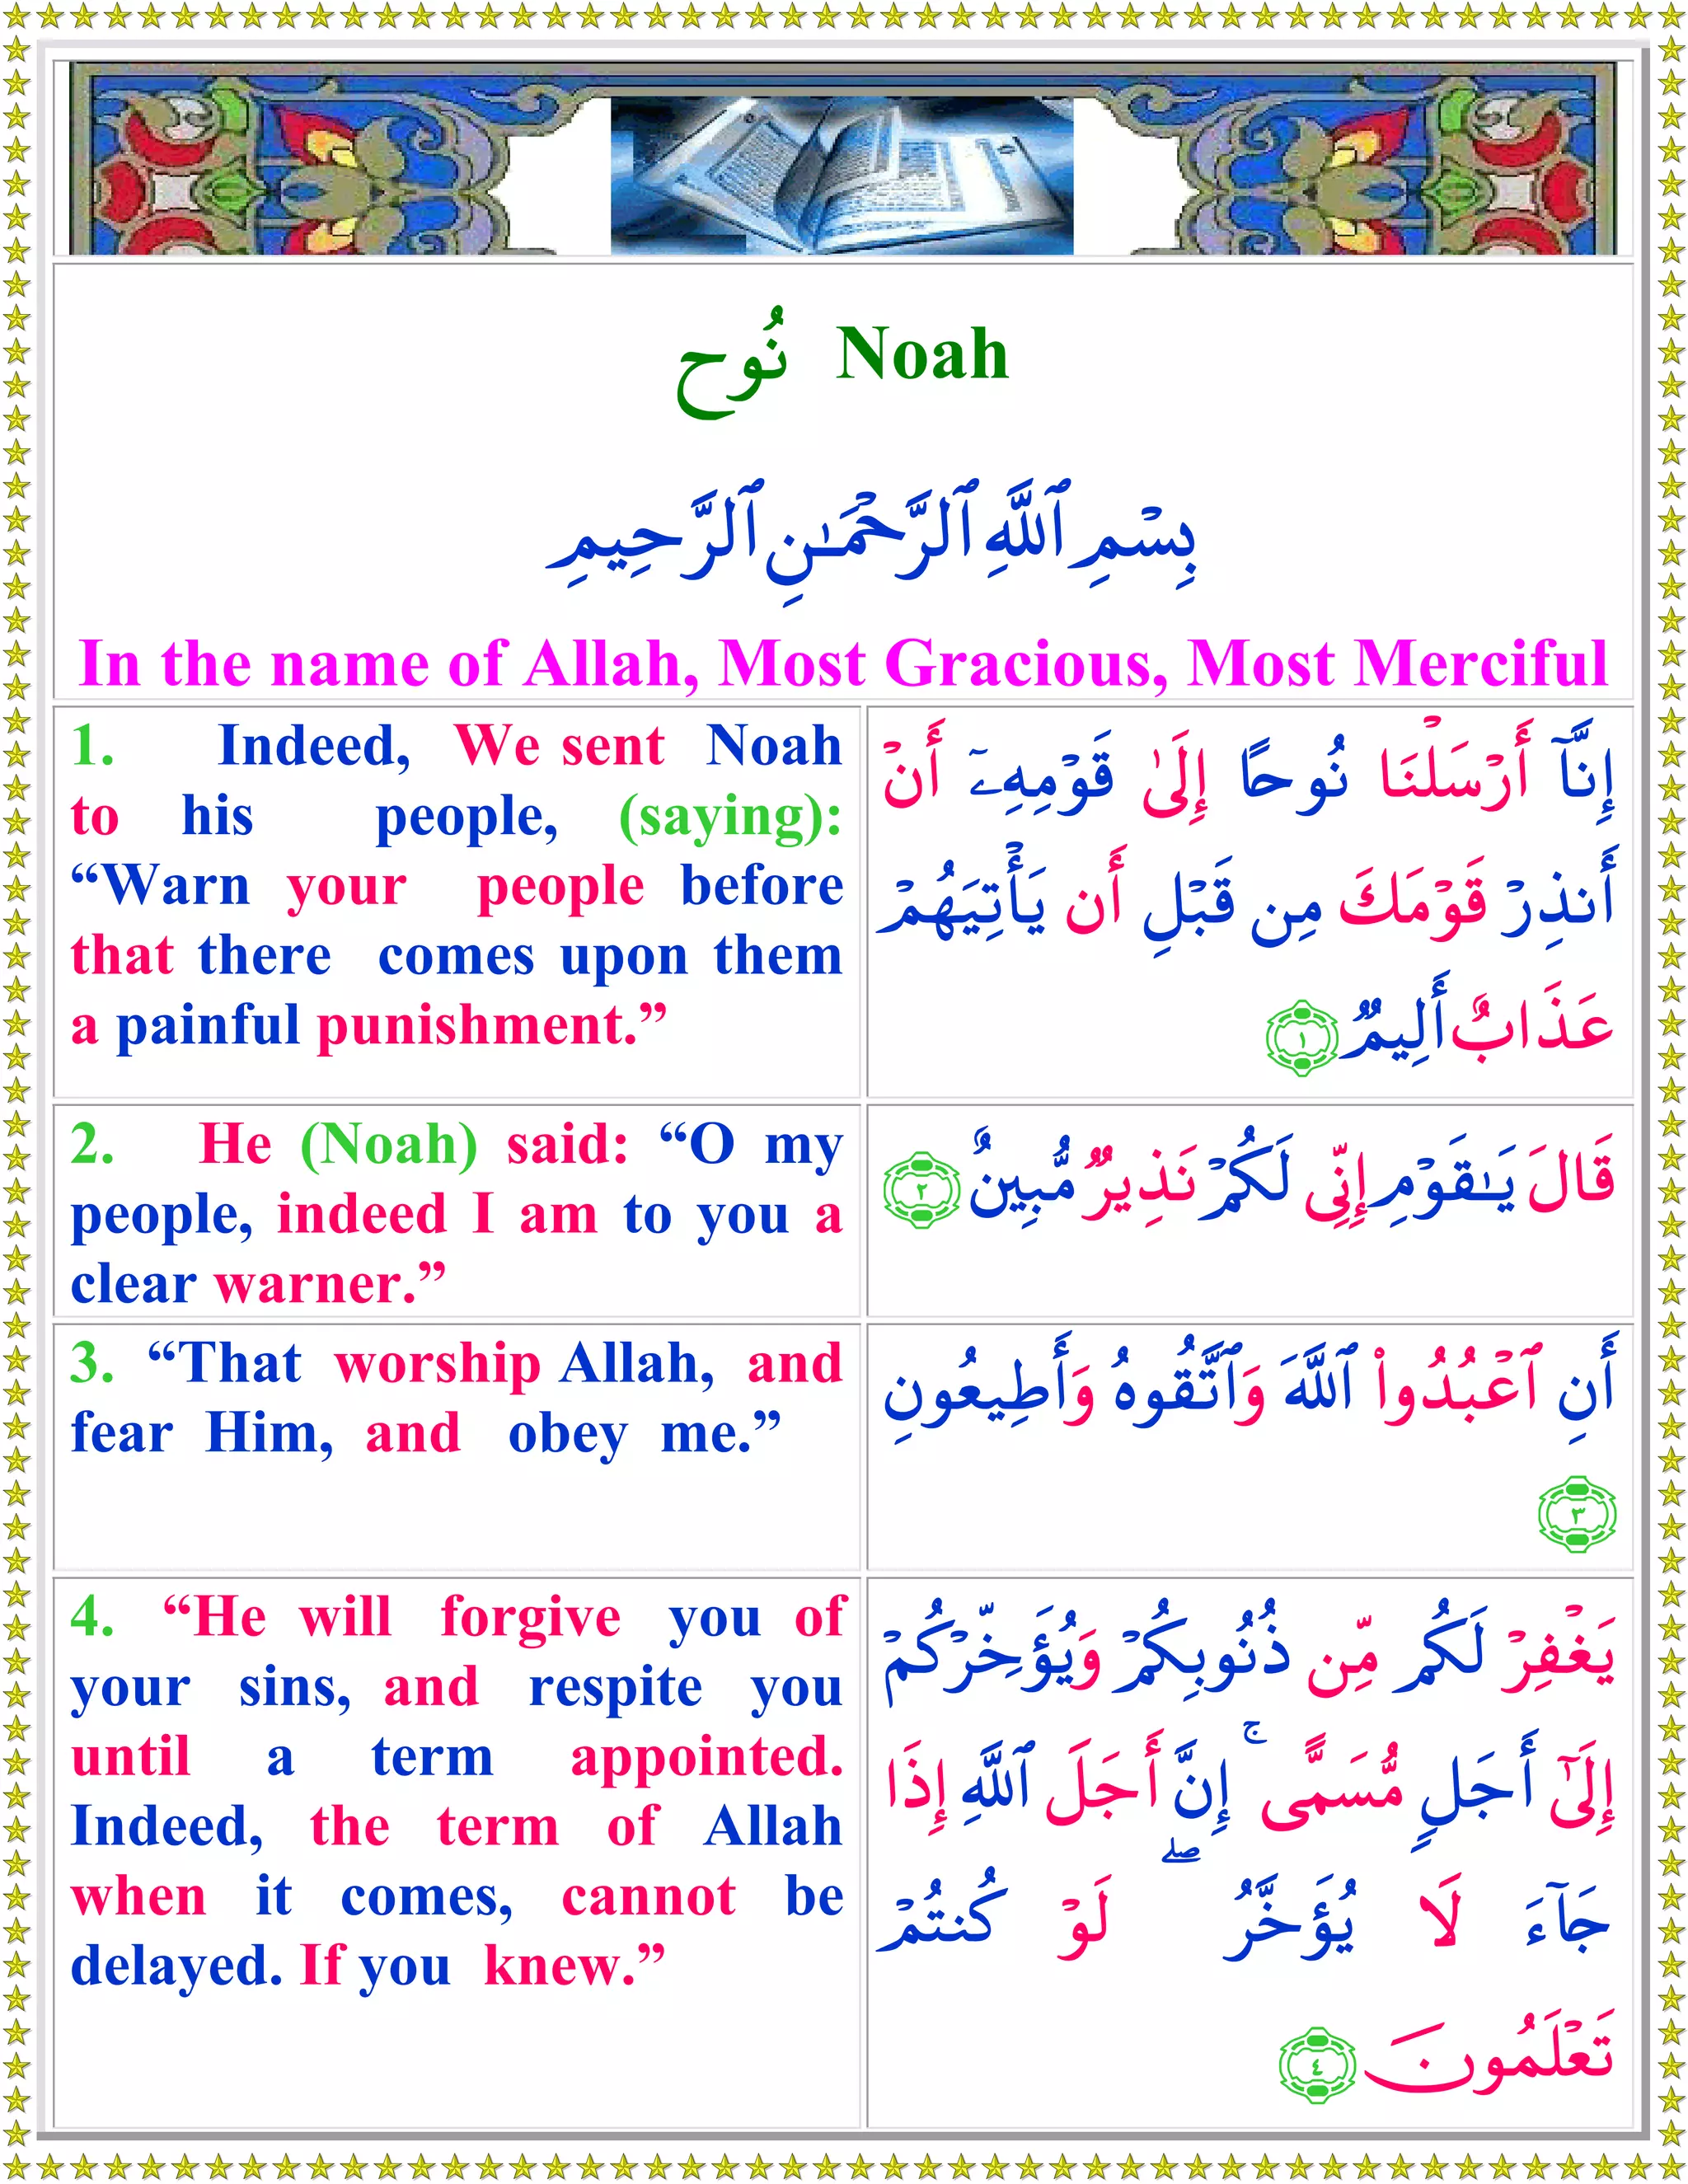 نُوح Noah
بِسۡمِ ٱللَّهِ ٱلرَّحۡمَـٰنِ ٱلرَّحِيمِ
In the name of Allah, Most Gracious, Most Merciful
1. Indeed, We sent Noah
to his people, (saying):
“Warn your people before
that there comes upon them
a painful punishment.”
إِنَّآ أَرۡسَلۡنَا نُوحًا إِلَىٰ قَوۡمِهِۦٓ أَنۡ
أَنذِرۡ قَوۡمَكَ مِن قَبۡلِ أَن يَأۡتِيَهُمۡ
عَذَابٌ أَلِيمٌ ١
2. He (Noah) said: “O my
people, indeed I am to you a
clear warner.”
قَالَ يَـٰقَوۡمِ إِنِّى لَكُمۡ نَذِيرٌ مُّبِينٌ ٢
3. “That worship Allah, and
fear Him, and obey me.”
أَنِ ٱعۡبُدُواْ ٱللَّهَ وَٱتَّقُوهُ وَأَطِيعُونِ
٣
4. “He will forgive you of
your sins, and respite you
until a term appointed.
Indeed, the term of Allah
when it comes, cannot be
delayed. If you knew.”
يَغۡفِرۡ لَكُم مِّن ذُنُوبِكُمۡ وَيُؤَخِّرۡكُمۡ
إِلَىٰٓ أَجَلٍ مُّسَمًّى ۚ إِنَّ أَجَلَ ٱللَّهِ إِذَا
جَآءَ لَا يُؤَخَّرُ ۖ لَوۡ كُنتُمۡ
تَعۡلَمُونَ ٤